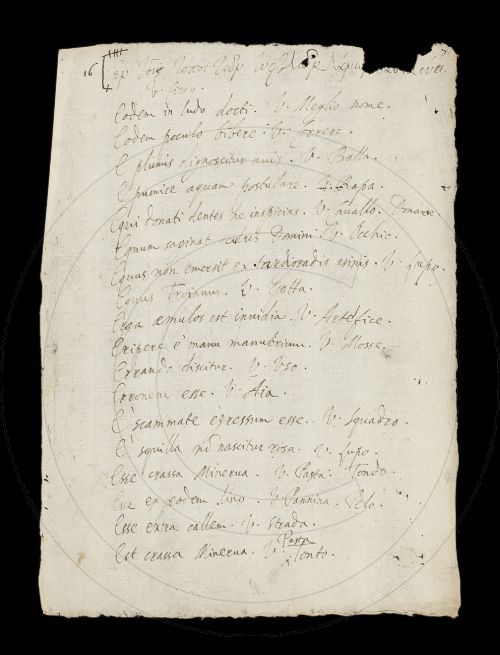 16
V. Cieco.
Eodem in ludo docti. V. Meglio nome.
Eodem poculo bibere. V. Torcere.
E plumis dignoscitur avis. V. Balla.
E pumice aquam postulare. V. Rapa.
Equi donati dentes ne inspicias. V. Cavallo. Donare
Equum saginat oculus Domini. V. Occhio.
Equus non emersit ex asinis. V. Lupo.
Equus Troianus. V.
Erga æmulos est invidia. V. Artefice.
Eripere è manu manubrium. V. Mosse.
Errando discitur. V. Uso.
Erronem esse. V. Aia.
È scammate egressum esse. V. Squadro.
È squilla nō nascitur rosa. V. Lupo.
Esse crassa Minerva. V. Pasta. Tondo.
Esse ex eodem lino. V. Pannina. Pelo.
Esse extra callem. V. Strada.
Est crassa Minerva. V. Pasta Tonto.